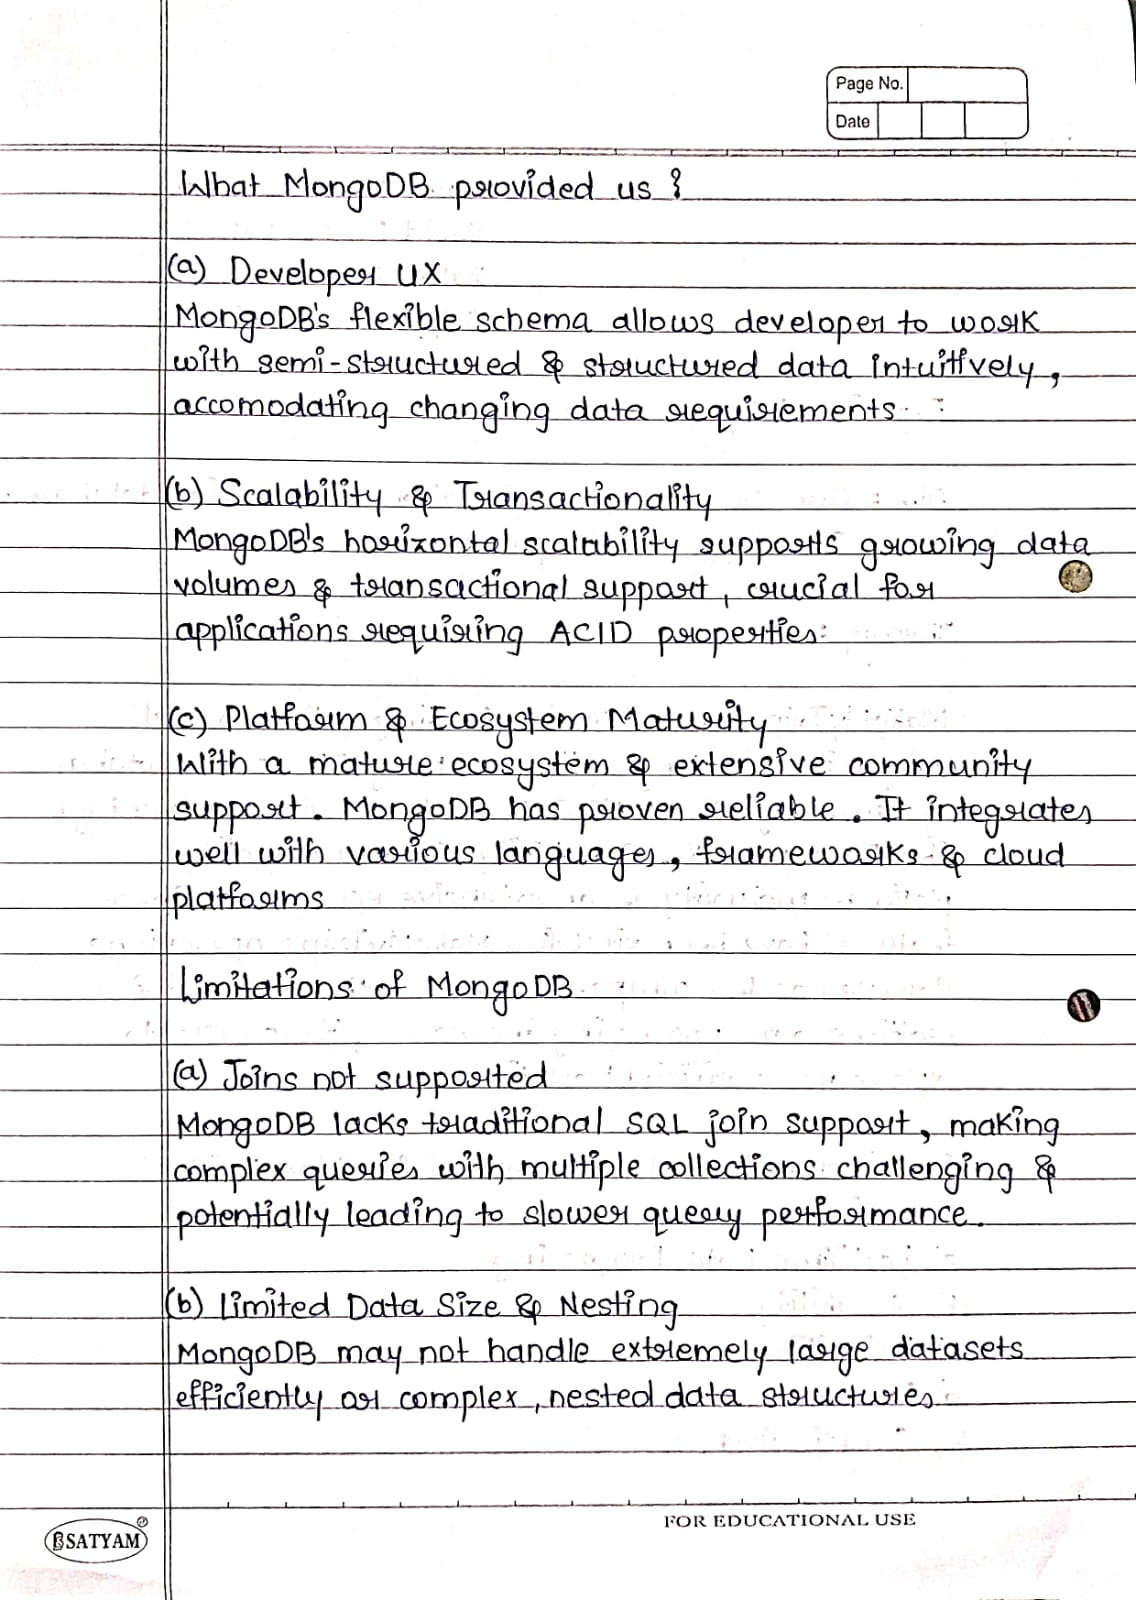 Page No.
Date
What MongoDB provided us ?
(a) Developer UX
MongoDB's flexible schema allows developer to work
with semi-structured & structured data intuitively,
accomodating changing data requirements.
(b) Scalability & Transactionality
MongoDB's horizontal scalability supports growing data
volumes & transactional support, crucial for
applications requiring ACID properties.
(c) Platform & Ecosystem Maturity
With a mature ecosystem & extensive community
support. MongoDB has proven reliable. It integrates
well with various languages, frameworks & cloud
platforms
Limitations of MongoDB
(a) Joins not supported
MongoDB lacks traditional SQL join support, making
complex queries with multiple collections challenging &
potentially leading to slower query performance.
(b) Limited Data Size & Nesting
MongoDB may not handle extremely large datasets
efficiently or complex, nested data structures.
FOR EDUCATIONAL USE
SATYAM